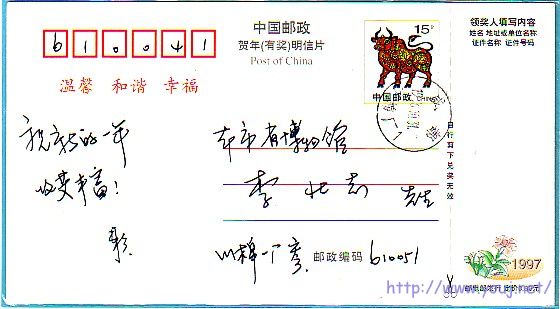 中国邮政
贺年(有奖)明信片
Post of China
610041
温馨 和谐 幸福
15分
中国邮政
CHINA
领奖人填写内容
姓名 地址或单位名称
证件名称 证件号码
自行剪下兑奖无效
祝新的一年
收获丰富!
本市省博物馆
李 志 先生
川棉一厂
邮政编码 610051
1997
邮电部发行